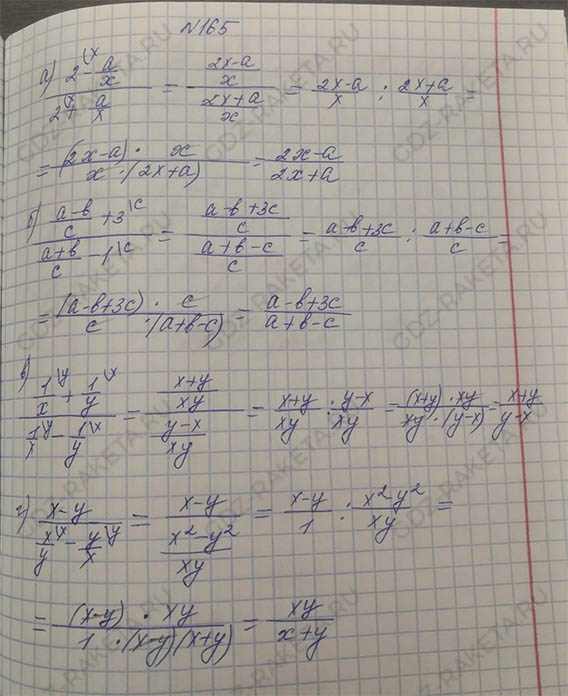 №165
а) (2^(x - a/x)/(2^(x + a/x) = ((2x-a)/x)/((2x+a)/x) = (2x-a)/x : (2x+a)/x =
= ((2x-a) · x)/(x · (2x+a)) = (2x-a)/(2x+a)
б) ((a-b)/c + 3^(c)/((a+b)/c - 1^(c) = ((a-b+3c)/c)/((a+b-c)/c) = (a-b+3c)/c : (a+b-c)/c =
= ((a-b+3c) · c)/(c · (a+b-c)) = (a-b+3c)/(a+b-c)
в) (1/x^(y + 1/y^(x)/(1/x^(y - 1/y^(x) = ((x+y)/xy)/((y-x)/xy) = (x+y)/xy : (y-x)/xy = ((x+y) · xy)/(xy · (y-x)) = (x+y)/(y-x)
г) (x-y)/(x/y^(x - y/x^(y) = (x-y)/((x²-y²)/xy) = (x-y)/1 : (x²-y²)/xy =
= ((x-y) · xy)/(1 · (x-y)(x+y)) = xy/(x+y)
GDZ-RAKETA.RU